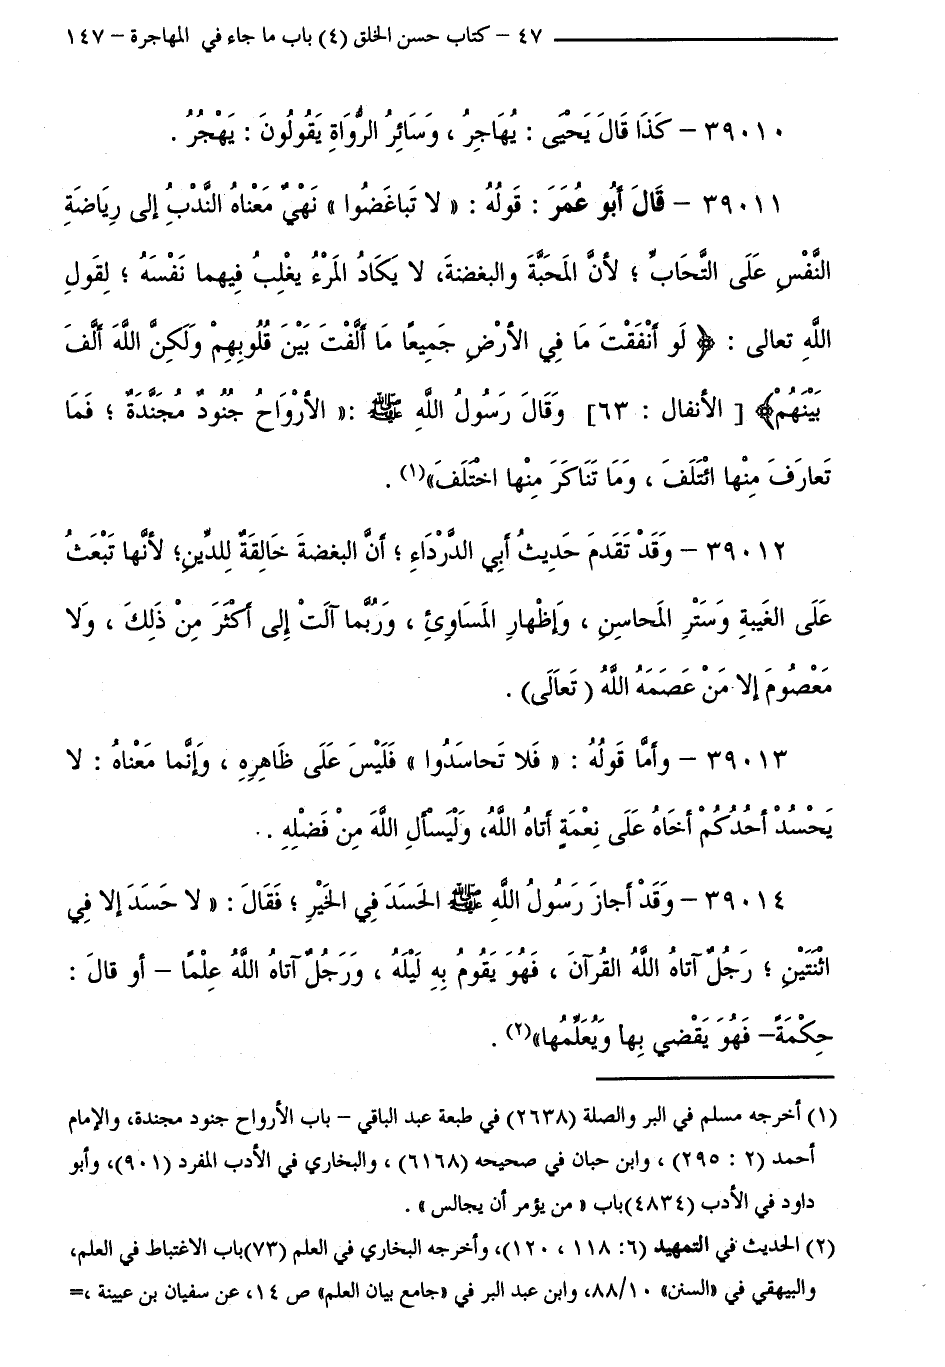 ٤٧ – كتاب حسن الخلق (٤) باب ما جاء في المهاجرة – ١٤٧
٣٩٠١٠ – كَذَا قَالَ يَحْيَى : يُهَاجِرُ ، وَسَائِرُ الرُّوَاةِ يَقُولُونَ : يَهْجُرُ .
٣٩٠١١ – قَالَ أَبُو عُمَرَ : قَولُهُ : « لا تَباغَضُوا » نَهْيٌ مَعْناهُ النَّدْبُ إلى رِيَاضَةِ
النَّفْسِ عَلَى التَّحَابِّ ؛ لأنَّ المَحَبَّةَ والبغضةَ، لا يَكَادُ المَرْءُ يغْلِبُ فِيهما نَفْسَهُ ؛ لِقَولِ
اللَّهِ تعالى : ﴿ لَو أَنْفَقْتَ مَا فِي الأرْضِ جَمِيعًا مَا أَلَّفْتَ بَيْنَ قُلُوبِهِمْ وَلَكِنَّ اللَّهَ أَلَّفَ
بَيْنَهُمْ﴾ [ الأنفال : ٦٣] وَقَالَ رَسُولُ اللَّهِ ﷺ :« الأرْوَاحُ جُنُودٌ مُجَنَّدَةٌ ؛ فَمَا
تَعارَفَ مِنْها ائْتَلَفَ ، وَمَا تَنَاكَرَ مِنْها اخْتَلَفَ»(١) .
٣٩٠١٢ – وَقَدْ تَقَدمَ حَدِيثُ أبي الدَّرْدَاءِ ؛ أنَّ البغضةَ حَالِقَةٌ لِلدِّينِ؛ لأنَّها تَبْعَثُ
عَلَى الغَيبةِ وَسَتْرِ المَحاسنِ ، وَإظْهارِ المَسَاوِئِ ، وَرُبَّما آلَتْ إِلى أكْثَرَ مِنْ ذَلِكَ ، وَلا
مَعْصُومَ إلا مَنْ عَصَمَهُ اللَّهُ ( تَعَالَى) .
٣٩٠١٣ – وأمَّا قَولُهُ : « فَلا تَحاسَدُوا » فَلَيْسَ عَلَى ظَاهِرِهِ ، وَإنَّما مَعْناهُ : لا
يَحْسُدْ أحُدُكُمْ أخَاهُ عَلَى نِعْمَةٍ أتاهُ اللَّهُ، وَلْيَسْألِ اللَّهَ مِنْ فَضْلِهِ .
٣٩٠١٤ – وَقَدْ أجازَ رَسُولُ اللَّهِ ﷺ الحَسَدَ فِي الخَيْرِ ؛ فَقَالَ : « لا حَسَدَ إلا فِي
اثْنَتَيْنِ ؛ رَجُلٌ آتاهُ اللَّهُ القُرآنَ ، فَهُوَ يَقُومُ بِهِ لَيْلَهُ ، وَرَجُلٌ آتاهُ اللَّهُ عِلْمًا – أو قالَ :
حِكْمَةً– فَهُوَ يَقْضِي بِها وَيُعَلِّمُها»(٢) .
(١) أخرجه مسلم في البر والصلة (٢٦٣٨) في طبعة عبد الباقي – باب الأرواح جنود مجندة، والإمام
أحمد (٢ : ٢٩٥) ، وابن حبان في صحيحه (٦١٦٨) ، والبخاري في الأدب المفرد (٩٠١)، وأبو
داود في الأدب (٤٨٣٤)باب « من يؤمر أن يجالس » .
(٢) الحديث في التمهيد (٦: ١١٨ ، ١٢٠)، وأخرجه البخاري في العلم (٧٣)باب الاغتباط في العلم،
والبيهقي في «السنن» ٨٨/١٠، وابن عبد البر في «جامع بيان العلم» ص ١٤، عن سفيان بن عيينة ،=